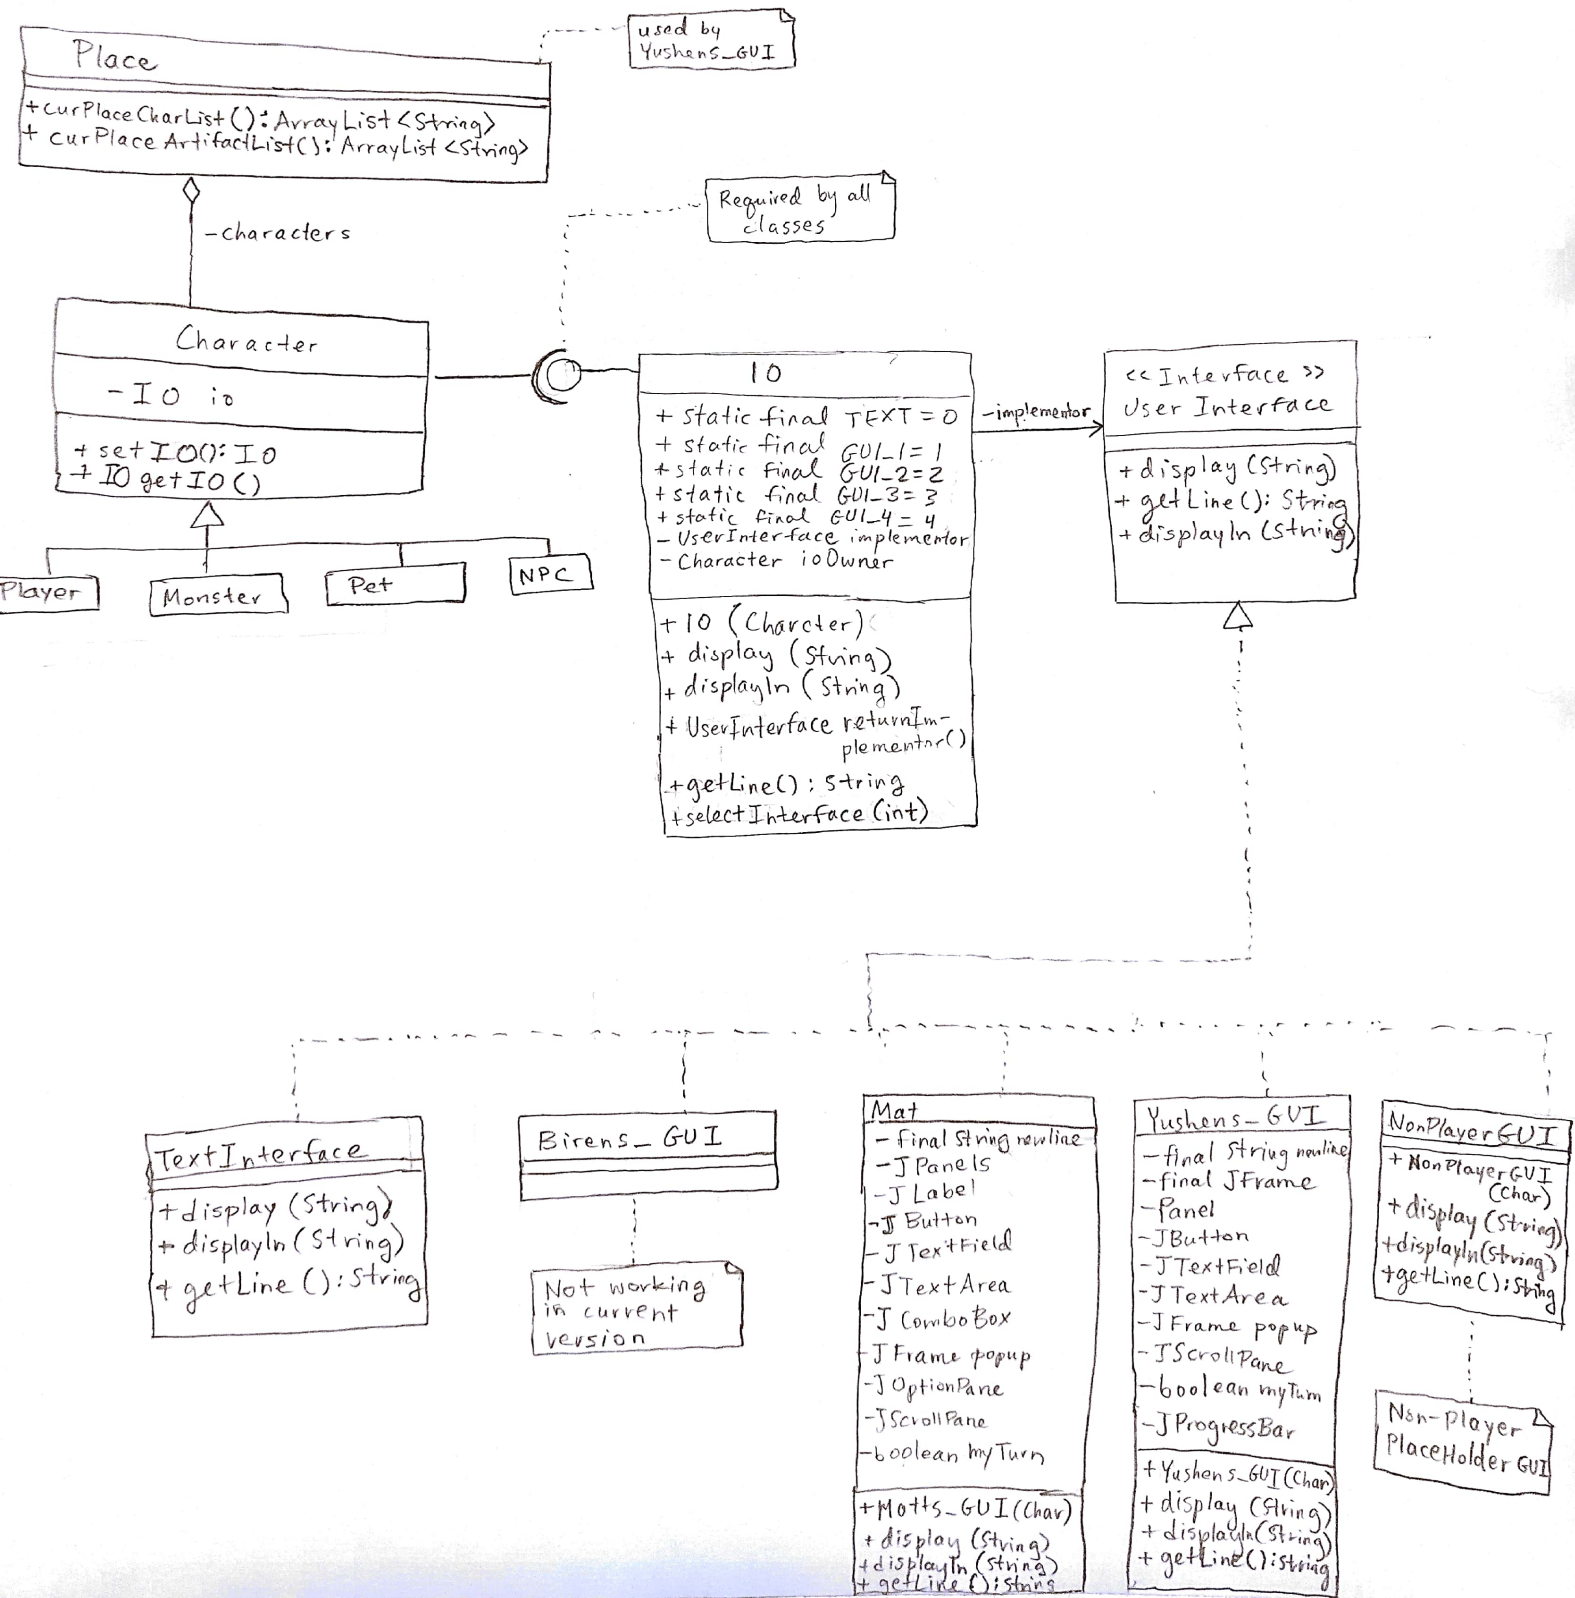 Place
+curPlaceCharList():ArrayList<String>
+ curPlaceArtifactList():ArrayList<String>
used by
Yushens_GUI
-characters
Required by all
classes
Character
-IO io
+ setIO():IO
+ IO getIO()
Player
Monster
Pet
NPC
IO
+ static final TEXT=0
+ static final GUI_1=1
+ static final GUI_2=2
+ static final GUI_3=3
+ static final GUI_4=4
- UserInterface implementor
- Character ioOwner
+ IO (Charcter)
+ display (String)
+ displayln (String)
+ UserInterface returnIm-
plementor()
+getLine(): String
+selectInterface(int)
-implementor
<< Interface >>
User Interface
+ display (String)
+ getLine(): String
+ displayln (String)
TextInterface
+ display (String)
+ displayln (String)
+ getLine ():String
Birens_GUI
Not working
in current
version
Mat
- final String newline
-JPanels
-JLabel
-JButton
-JTextField
-JTextArea
-JComboBox
-JFrame popup
-JOptionPane
-JScrollPane
-boolean myTurn
+Motts_GUI(Char)
+ display (String)
+displayln (String)
+ getLine():String
Yushens_GUI
-final String newline
-final JFrame
-Panel
-JButton
-JTextField
-JTextArea
-JFrame popup
-JScrollPane
-boolean myTurn
-JProgressBar
+Yushens_GUI(Char)
+ display (String)
+ displayln(String)
+ getLine():String
NonPlayerGUI
+ NonPlayerGUI
(Char)
+ display (String)
+displayln(String)
+getLine():String
Non-Player
PlaceHolder GUI